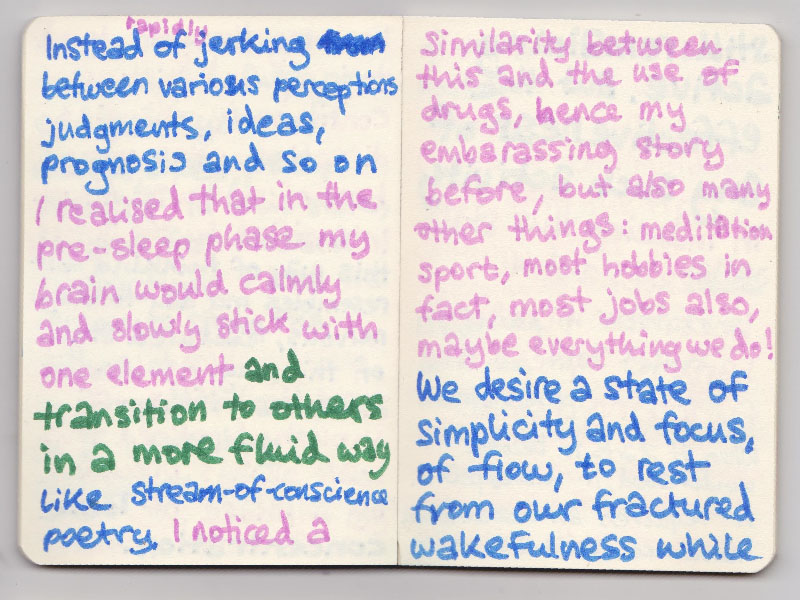 rapidly
Instead of jerking from
between various perceptions
judgments, ideas,
prognosis and so on
I realised that in the
pre-sleep phase my
brain would calmly
and slowly stick with
one element and
transition to others
in a more fluid way
like stream-of-conscience
poetry. I noticed a
similarity between
this and the use of
drugs, hence my
embarassing story
before, but also many
other things: meditation
sport, most hobbies in
fact, most jobs also,
maybe everything we do!
We desire a state of
simplicity and focus,
of flow, to rest
from our fractured
wakefulness while